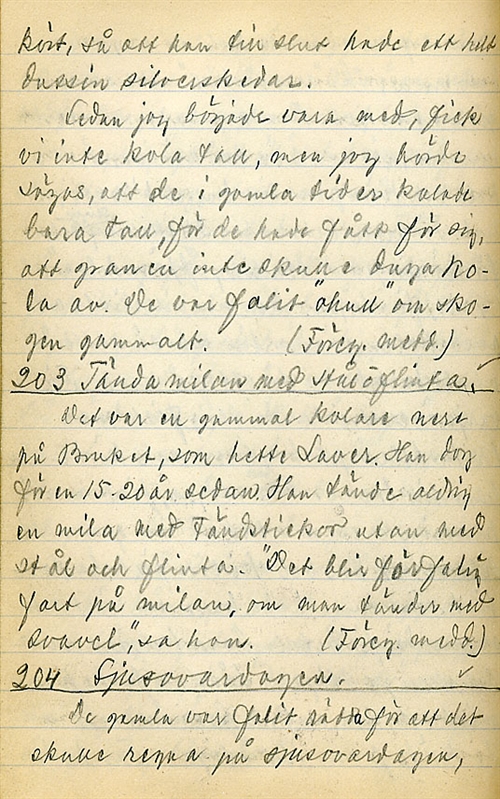 kört, så att han till slut hade ett helt
dussin silverskedar.
Sedan jag började vara med, fick
vi inte kola tall, men jag hörde
sägas, att de i gamla tider kolade
bara tall, för de hade fått för sig,
att granen inte skulle duga ko-
la av. De var falit "ohull" om sko-
gen gammalt. (Föreg. medd.)
203 Tända milan med stål o flinta.
Det var en gammal kolare nere
på Bruket, som hette Laver. Han dog
för en 15-20 år sedan. Han tände aldrig
en mila med tändstickor utan med
stål och flinta. "Det blir för falig
fart på milan, om man tänder med
svavel", sa han. (Föreg. medd.)
204 Sjusovardagen.
De gamla var falit rädda för att det
skulle regna på sjusovardagen,